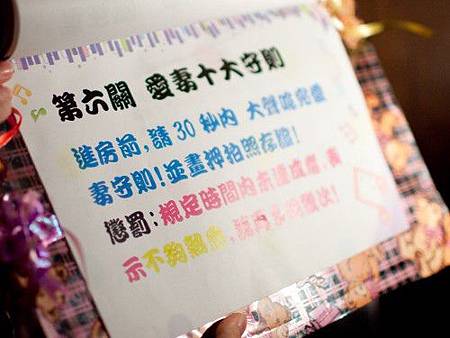 第六關 愛妻十大守則
進房前,請30秒內 大聲唸完愛
妻守則!並畫押拍照存證!
懲罰:規定時間內未達成者,表
示不夠熟悉,